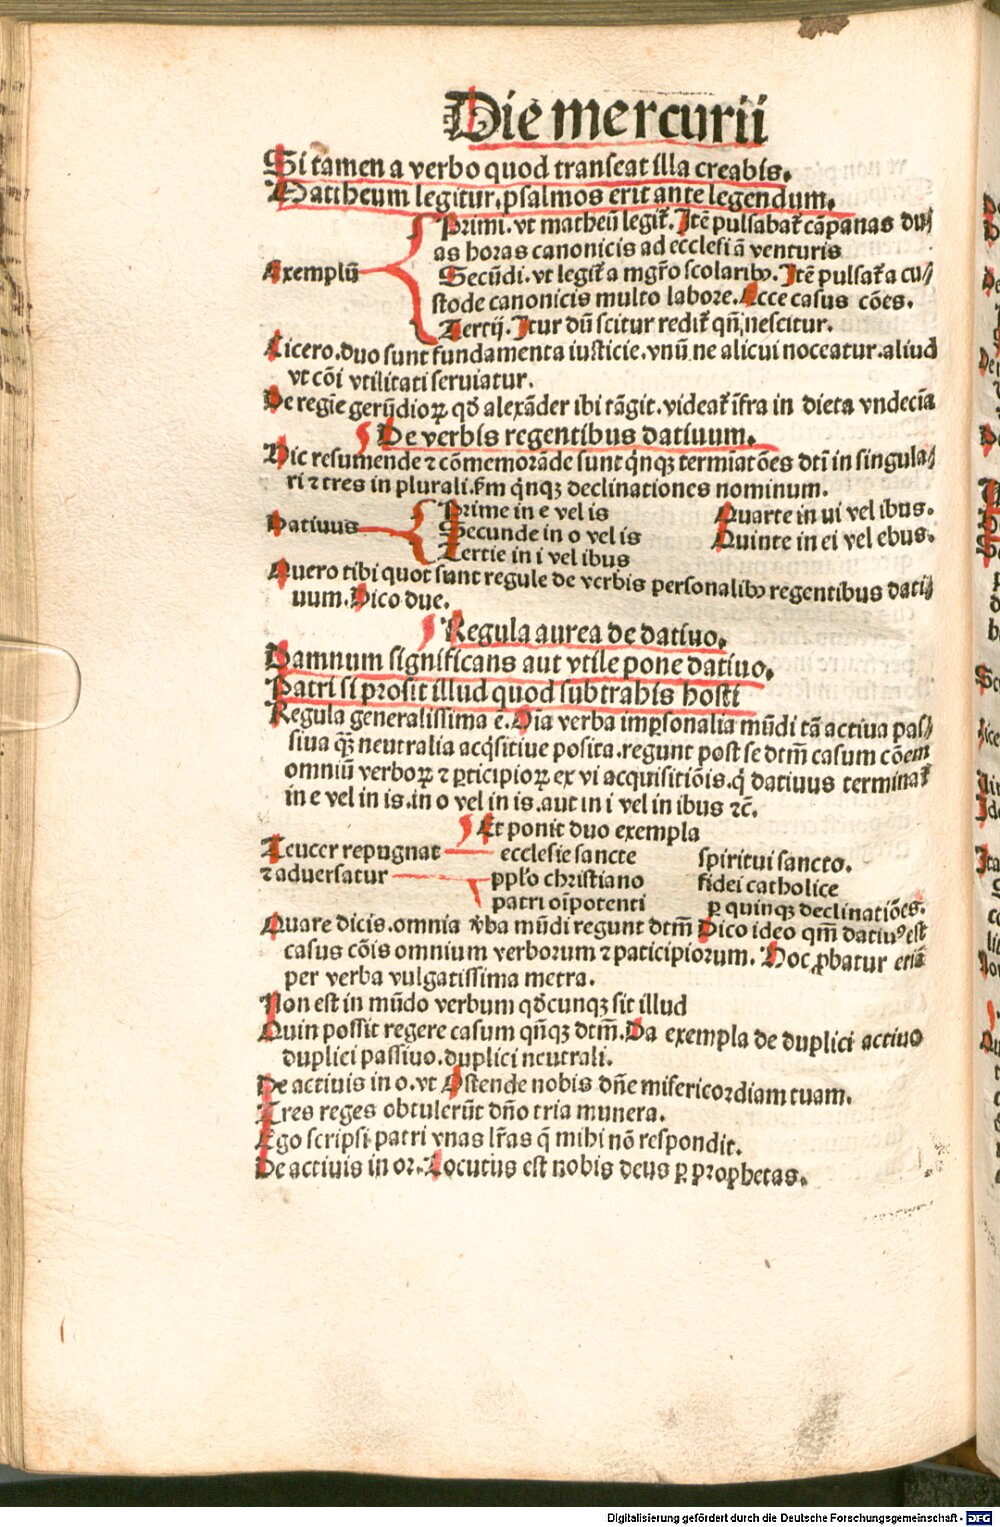 Die mercurii
Si tamen a verbo quod transeat illa creabis.
Mattheum legitur, psalmos erit ante legendum.
Primi. vt matheū legit᷑. Itē pulsabat᷑ cāpanas du⸗
as horas canonicis ad ecclesiā venturis
Exemplū
Secūdi. vt legit᷑ a mgr̄o scolaribꝰ. Itē pulsat᷑ a cu⸗
stode canonicis multo labore. Ecce casus cōes.
Tertij. Itur dū scitur redit᷑ qn̄ nescitur.
Cicero. duo sunt fundamenta iusticie. vnū ne alicui noceatur. aliud
vt cōi vtilitati seruiatur.
De regīe gerūdioꝝ qđ alexāder ibi tāgit. videat᷑ īfra in dieta vndecīa
De verbis regentibus datiuum.
Hic resumende ⁊ cōmemorāde sunt q̄nqꝫ termiatōes dtī in singula⸗
ri ⁊ tres in plurali. s̄m q̄nqꝫ declinationes nominum.
Datiuus
Prime in e vel is
Secunde in o vel is
Tertie in i vel ibus
Quarte in ui vel ibus.
Quinte in ei vel ebus.
Quero tibi quot sunt regule de verbis personalibꝰ regentibus dati⸗
uum. Dico due.
Regula aurea de datiuo.
Damnum significans aut vtile pone datiuo.
Patri si prosit illud quod subtrahis hosti
Regula generalissima ē. Oīa verba imꝑsonalia mūdi tā actiua pas⸗
siua qꝫ̄ neutralia acq̄sitiue posita. regunt post se dtm̄ casum cōem
omniū verboꝝ ⁊ ꝑticipioꝝ ex vi acquisitiōis. q̄ datiuus terminat᷑
in e vel in is. in o vel in is. aut in i vel in ibus ⁊c̄.
Et ponit duo exempla
Teucer repugnat
⁊ aduersatur
ecclesie sancte
pplo christiano
patri oīpotenti
spiritui sancto.
fidei catholice
ꝑ quinqꝫ declinatiōes.
Quare dicis. omnia v̄ba mūdi regunt dtm̄ Dico ideo qm̄ datiuꝰ est
casus cōis omnium verborum ⁊ paticipiorum. Hoc ꝓbatur etiā
per verba vulgatissima metra.
Non est in mūdo verbum qđcunqꝫ sit illud
Quin possit regere casum qn̄qꝫ dtm̄. Da exempla de duplici actiuo
duplici passiuo. duplici neutrali.
De actiuis in o. vt Ostende nobis dn̄e misericordiam tuam.
Tres reges obtulerūt dn̄o tria munera.
Ego scripsi patri vnas lr̄as q̄ mihi nō respondit.
De actiuis in or. Locutus est nobis deus ꝑ prophetas.
Digitalisierung gefördert durch die Deutsche Forschungsgemeinschaft - DFG